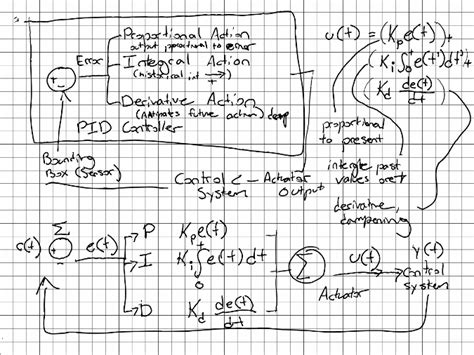 Proportional Action
output proportional to error
Error
Integral Action
(historical int
+
-
Derivative Action
(Anticipates future action) damp
PID Controller
Bounding
Box (Sensor)
Control < Actuator
System Output
u(t) = (Kp e(t)) +
(Ki ∫0t e(t')dt') +
(Kd de(t)/dt)
proportional
to present
integrate past
values over t
derivative,
dampening
Σ
r(t) + - e(t)
P Kp e(t)
I Ki ∫0t e(t)dt
D Kd de(t)/dt
Σ u(t) y(t)
Actuator
Control
System